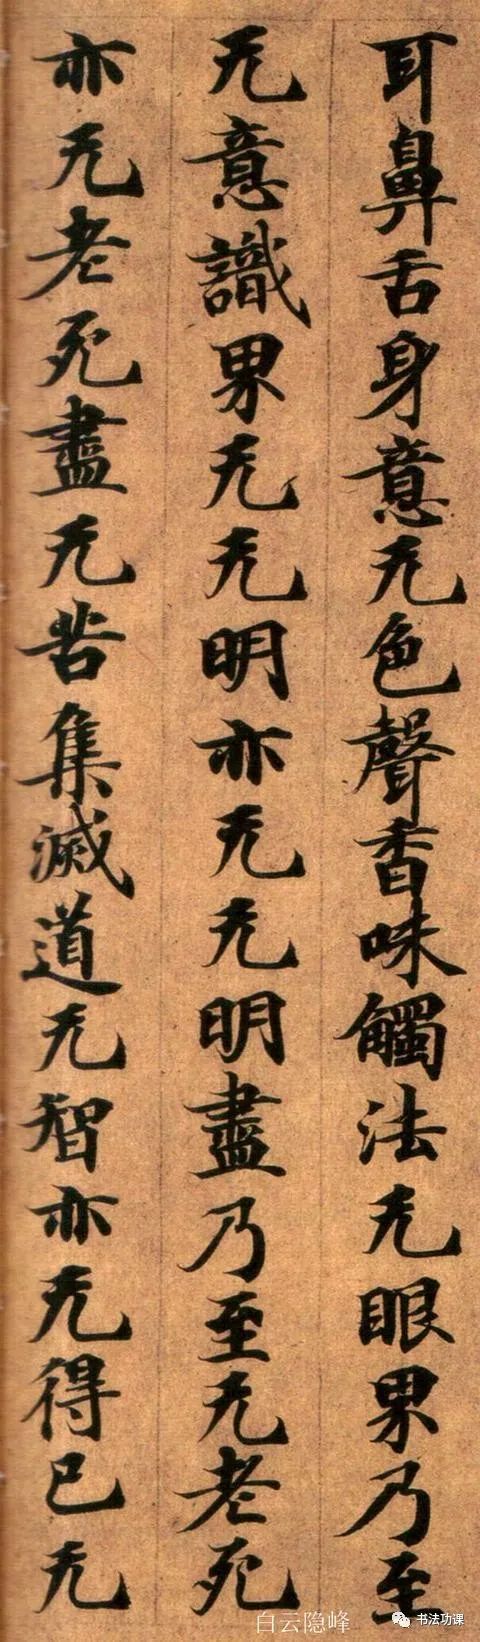 耳鼻舌身意无色聲香味觸法无眼界乃至
无意識界无无明亦无无明盡乃至无老死
亦无老死盡无苦集滅道无智亦无得已无
白云隐峰
书法功课